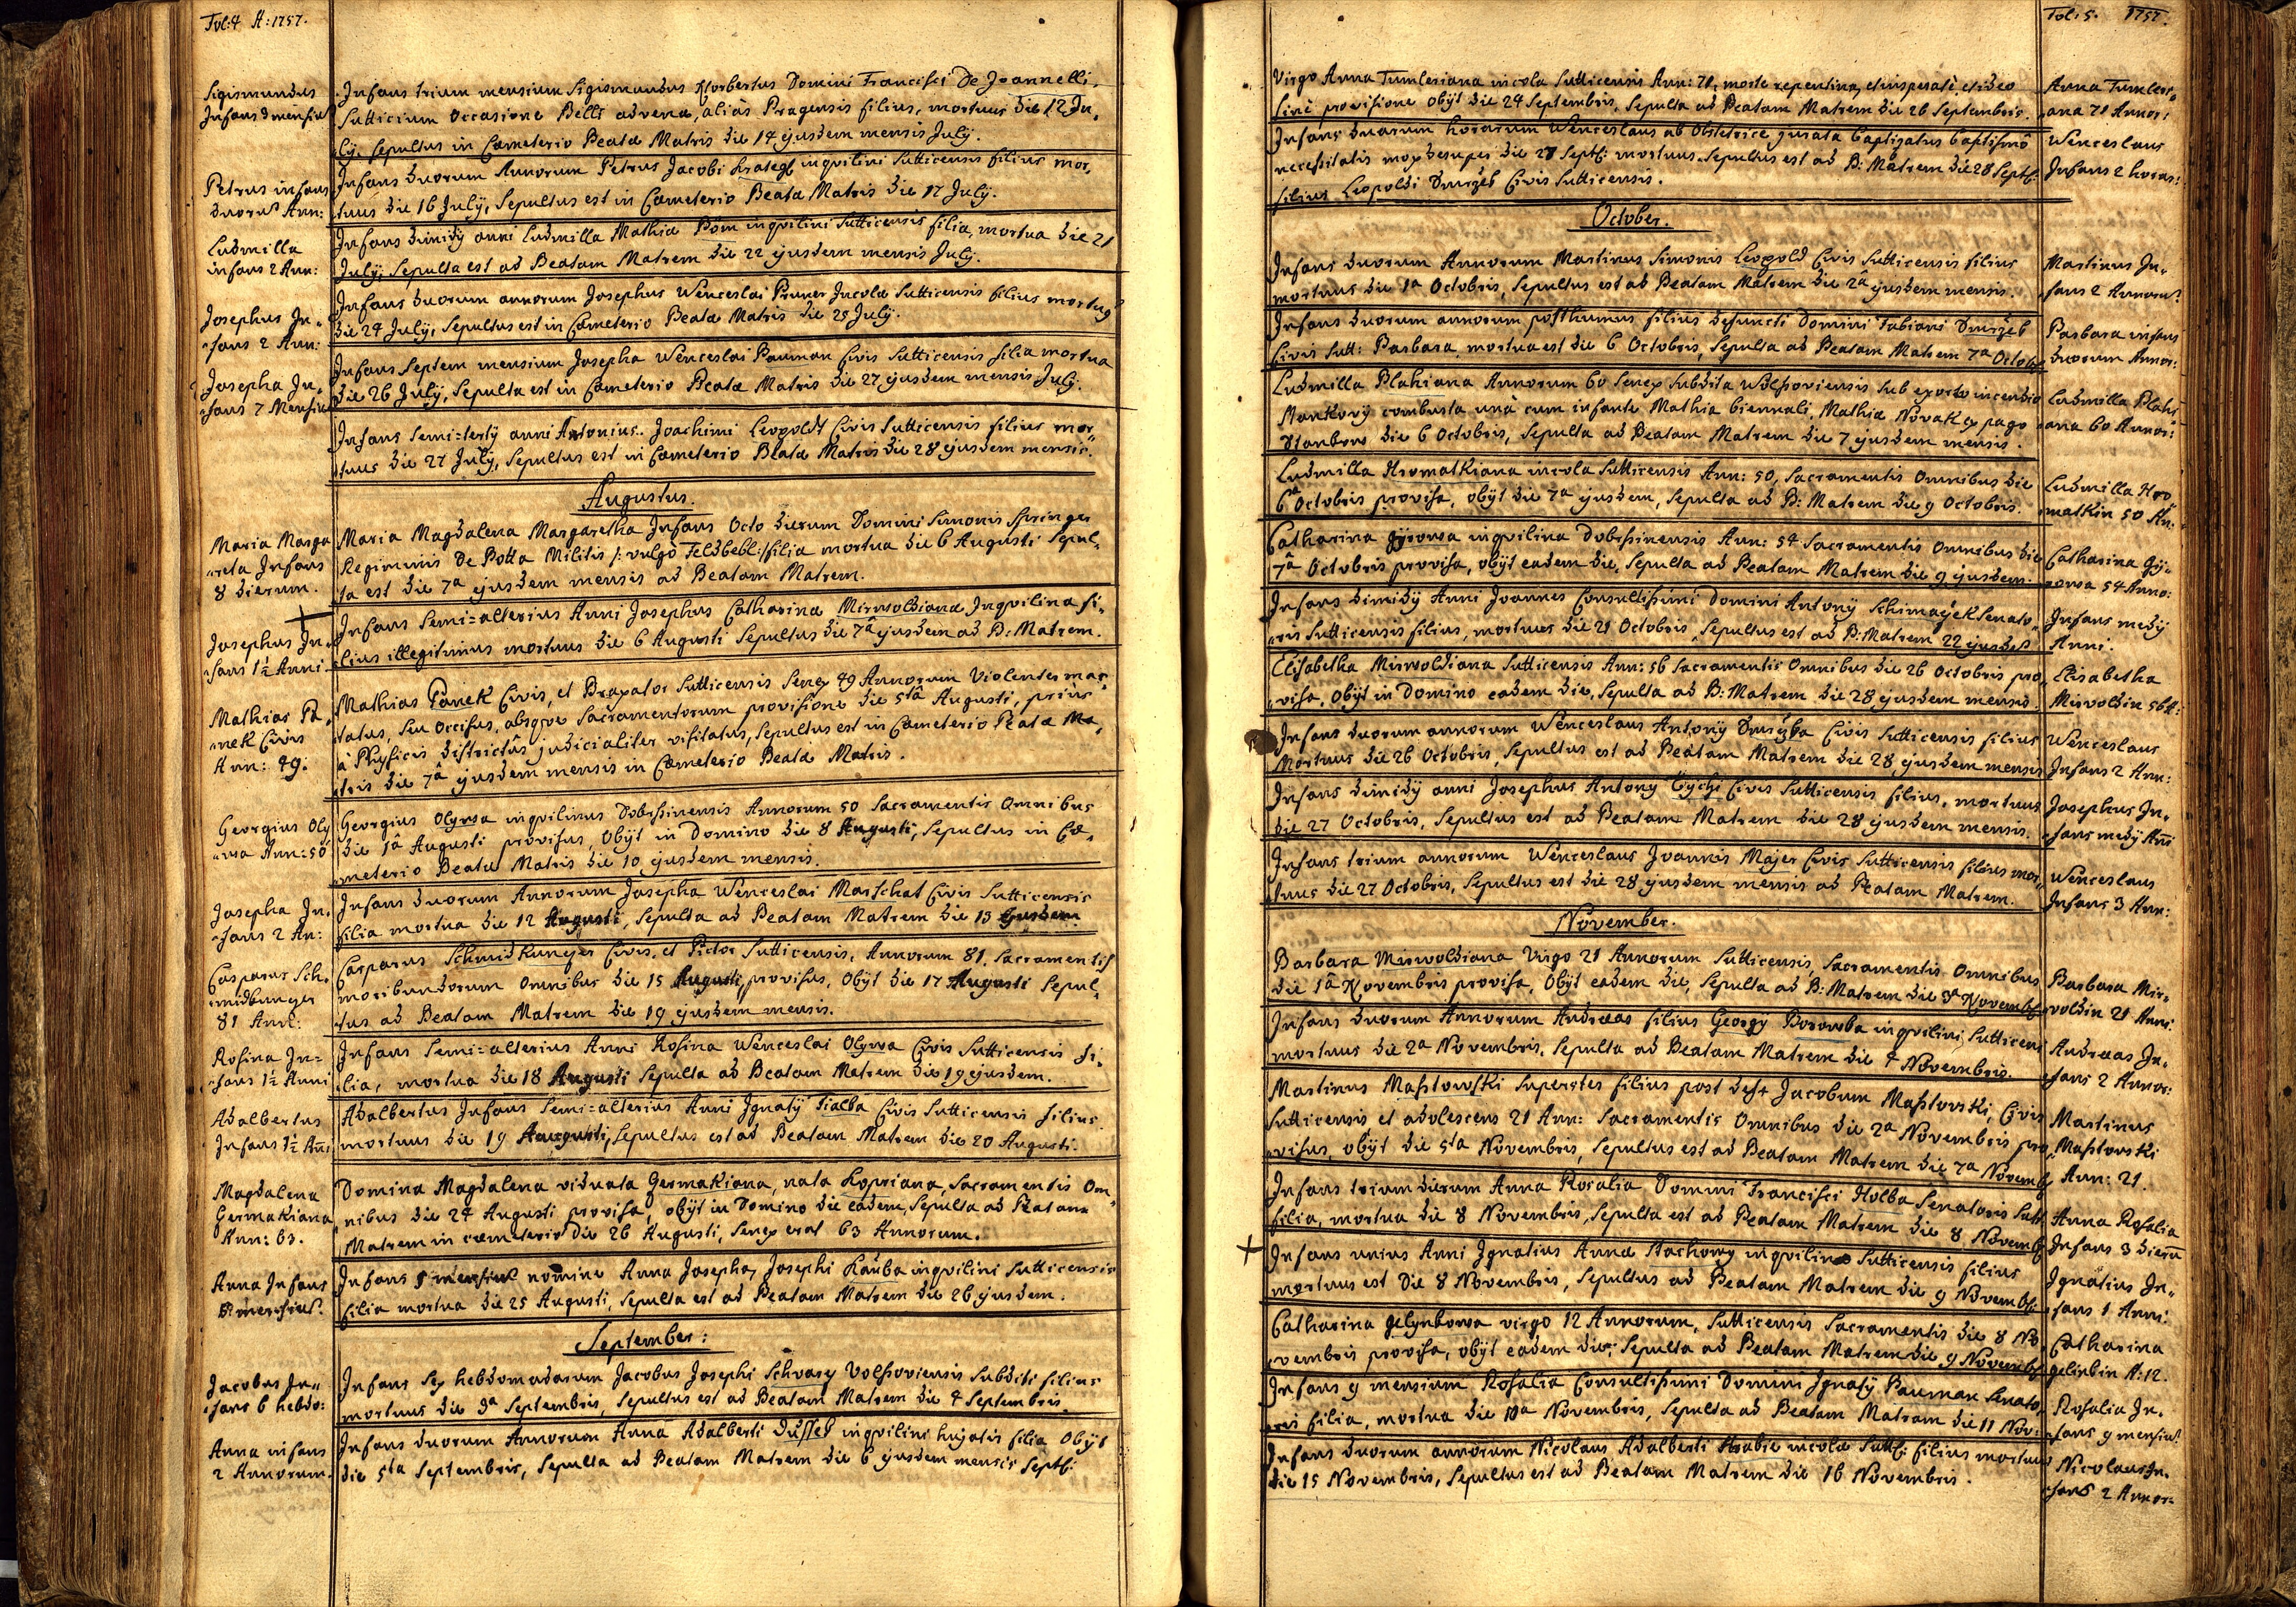 Fol: 4 A: 1757.
Sigismundus
Infans 3 mensiũ
Infans trium mensium Sigismundus Norbertus Domini Francisci De Joannelli,
Sutticium Occasione Belli advena, aliàs Pragensis filius, mortuus die 12 Ju,,
,,ly, Sepultus in Cœmeterio Beatæ Matris die 14 ejusdem mensis July.
Petrus infans
duorũ Ann:
Infans duorum Annorum Petrus Jacobi inqvilini Sutticensis filius mor,,
tuus die 16 July, Sepultus est in Cœmeterio Beatæ Matris die 17 July.
Ludmilla
infans 2 Ann:
Infans dimidy anni Ludmilla Mathiæ Böm inqvilini Sutticensis filia, mortua die 21
July, Sepulta est ad Beatam Matrem die 22 ejusdem mensis July.
Josephus In,,
,,fans 2 Ann:
Infans duorum annorum Josephus Wenceslai Pruner Incolæ Sutticensis filius mortuus
die 24 July, Sepultus est in Cœmeterio Beatæ Matris die 25 July.
Josepha In,,
,,fans 7 Mensiũ
Infans Septem mensium Josepha Wenceslai Pauman Civis Sutticensis filia mortua
die 26 July, Sepulta est in Cœmeterio Beatæ Matris die 27 ejusdem mensis July.
Infans Semi=terty anni Antonius Joachimi Leopoldt Civis Sutticensis filius mor,,
tuus die 27 July, Sepultus est in Cœmeterio Beatæ Matris die 28 ejusdem mensis.
Augustus.
Maria Marga
,,reta Infans
8 dierum.
Maria Magdalena Margaretha Infans Octo dierum Domini Simonis Springer
Regiminis De Botta Militis /: vulgò Feldbebl:/ filia mortua die 6 Augusti Sepul,,
ta est die 7a ejusdem mensis ad Beatam Matrem.
Josephus In,,
,,fans 1½ Anni
Infans Semi=alterius Anni Josephus Catharinæ Mirwoldianæ Inqvilinæ fi,,
lius illegitimus mortuus die 6 Augusti Sepultus die 7â ejusdem ad B: Matrem.
Mathias Pa,,
,,nek Civis
Ann: 49.
Mathias Panek Civis, et Braxator Sutticensis Senex 49 Annorum Violenter mac,,
tatus, seu Occisus, absqve Sacramentorum provisione die 5tâ Augusti, prius
à Physicis districtûs judicialiter visitatus, Sepultus est in Cœmeterio Beatæ Ma,,
tris die 7â ejusdem mensis in Cœmeterio Beatæ Matris.
Georgius Oly
,,wa Ann: 50
Georgius Olywa inqvilinus Dobrssinensis Annorum 50 Sacramentis Omnibus
die 1â Augusti provisus, Obÿt in Domino die 8 Augusti, Sepultus in Cœ,,
,,meterio Beatæ Matris die 10 ejusdem mensis.
Josepha In,,
,,fans 2 An:
Infans duorum Annorum Josepha Wenceslai Marschat Civis Sutticensis
filia mortua die 12 Augusti, Sepulta ad Beatam Matrem die 13 Ejusdem.
Casparus Sch,,
,,midkunger
81 Ann:
Casparus Schmidkunger Civis, et Pictor Sutticensis, Annorum 81, Sacramentis
moribundorum Omnibus die 15 Augusti, provisus, Obÿt die 17 Augusti Sepul,,
tus ad Beatam Matrem die 19 ejusdem mensis.
Rosina In=
,,fans 1½ Anni
Infans Semi=alterius Anni Rosina Wenceslai Olywa Civis Sutticensis fi,,
lia, mortua die 18 Augusti Sepulta ad Beatam Matrem die 19 ejusdem.
Adalbertus
Infans 1½ Añi
Adalbertus Infans Semi=alterius Anni Ignatÿ Fialba Civis Sutticensis filius
mortuus die 19 Augusti, Sepultus est ad Beatam Matrem die 20 Augusti.
Magdalena
Germakiana
Ann: 63.
Domina Magdalena viduata Germakiana, nata Kopriana, Sacramentis Om,,
nibus die 24 Augusti provisa, obÿt in Domino die eadem, Sepulta ad Beatam
Matrem in cœmeterio die 26 Augusti, Senex erat 63 Annorum.
Anna Infans
mensiũ.
Infans 5 mensiũ nomine Anna Josepha, Josephi Kauba inqvilini Sutticensis
filia mortua die 25 Augusti, Sepulta est ad Beatam Matrem die 26 ejusdem.
September:
Jacobus In,,
,,fans 6 hebdo:
Infans Sex hebdomadarum Jacobus Josephi Schwarz Volssoviensis Subditi filius
mortuus die 3a Septembris, Sepultus est ad Beatam Matrem die 4 Septembris.
Anna infans
2 Annorum.
Infans duorum Annorum Anna Adalberti Dussed inqvilini hujatis filia Obÿt
die 5ta Septembris, Sepulta ad Beatam Matrem die 6 ejusdem mensis Septb:
Fol: 5. 1757.
Virgo Anna Tumleriana incola Sutticensis Ann: 71, morte repentina, et insperatè, et ideo
sinè provisione Obÿt die 24 Septembris, Sepulta ad Beatam Matrem die 26 Septembris.
Anna Tumleri,,
,,ana 71 Annor:
Infans duarum horarum Wenceslaus ab Obstetrice jurata baptizatus baptismô
necessitatis mox desuper die 27 Septb: mortuus. Sepultus est ad B: Matrem die 28 Septb:
filius Leopoldi Dmrzeb Civis Sutticensis.
Wenceslaus
Infans 2 horar:
October.
Infans duorum Annorum Martinus Simonis Leopold Civis Sutticensis filius
mortuus die 1a Octobris, Sepultus est ad Beatam Matrem die 2â ejusdem mensis.
Martinus In,,
,,fans 2 Annorũ
Infans duorum annorum posthumus filius defuncti Domini Fabiani Dmrzeb
Civis Sutt: Barbara, mortua est die 6 Octobris, Sepulta ad Beatam Matrem 7a Octob:
Barbara infans
duorum Annor:
Ludmilla Blahiana Annorum 60 Senex Subdita Wolssoviensis Sub exorto incendio
Mankovÿ combusta unà cum infante Mathia biennali, Mathiæ Novak ex pago
die 6 Octobris, Sepulta ad Beatam Matrem die 7 ejusdem mensis.
Ludmilla Blahi
,,ana 60 Annor:
Ludmilla Hromatkiana incola Sutticensis Ann: 50, Sacramentis Omnibus die
6â Octobris provisa, obÿt die 7a ejusdem, Sepulta ad B: Matrem die 9 Octobris.
Ludmilla Hro
matkin 50 An:
Catharina Gÿrowa inqvilina Dobrssinensis Ann: 54 Sacramentis Omnibus die
7â Octobris provisa, obÿt eadem die, Sepulta ad Beatam Matrem die 9 ejusdem.
Catharina Gÿ,,
rowa 54 Anno:
Infans dimidÿ Anni Joannes Consultissimi Domini Antonÿ Schimaÿek Senato,,
,,ris Sutticensis filius, mortuus die 21 Octobris, Sepultus est ad B: Matrem 22 ejusdẽ
Infans medÿ
Anni.
Elisabetha Mirwoldiana Sutticensis Ann: 56 Sacramentis Omnibus die 26 Octobris pro,,
,,visa, Obÿt in Domino eadem die, Sepulta ad B: Matrem die 28 ejusdem mensis.
Elisabetha
Mirvoldin 56 A:
Infans duorum annorum Wenceslaus Antonÿ Civis Sutticensis filius
Mortuus die 26 Octobris, Sepultus est ad Beatam Matrem die 28 ejusdem mensis
Wenceslaus
Infans 2 Ann:
Infans dimidÿ anni Josephus Antonÿ Tÿchi Civis Sutticensis filius, mortuus
die 27 Octobris, Sepultus est ad Beatam Matrem die 28 ejusdem mensis.
Josephus In,,
,,fans medÿ Añi
Infans trium annorum Wenceslaus Joannis Majer Civis Sutticensis filius mor,,
tuus die 27 Octobris, Sepultus est die 28 ejusdem mensis ad Beatam Matrem.
Wenceslaus
Infans 3 Ann:
November.
Barbara Mirwoldiana Virgo 21 Annorum Sutticensis, Sacramentis Omnibus
die 1â Novembris provisa, Obÿt eadem die, Sepulta ad B: Matrem die 3a Novemb:
Barbara Mir,,
,,voldin 21 Anni.
Infans duorum Annorum Andreas filius Georgÿ Borowba inqvilini Sutticens
mortuus die 2a Novembris, Sepulta ad Beatam Matrem die 4 Novembris.
Andreas In,,
,,fans 2 Annor:
Martinus Masstowski Superstes filius post def+ Jacobum Masstovski, Civis
Sutticensis et adolescens 21 Ann: Sacramentis Omnibus die 2a Novembris pro,,
,,visus, obÿt die 5ta Novembris, Sepultus est ad Beatam Matrem die 7a Novemb:
Martinus
Masstovski
Ann: 21.
Infans trium dierum Anna Rosalia Domini Francisci Holba Senatoris Sutt:
filia, mortua die 8 Novembris, Sepulta est ad Beatam Matrem die 8 Novemb:
Anna Rosalia
Infans 3 dierũ
Infans unius Anni Ignatius Annæ Stachowy inqvilinæ Sutticensis filius
mortuus est die 8 Novembris, Sepultus ad Beatam Matrem die 9 Novemb:
Ignatius In,,
,,fans 1 Anni.
Catharina Gelynkowa virgo 12 Annorum, Sutticensis Sacramentis die 8 No
,,vembris provisa, obÿt eadem die, Sepulta ad Beatam Matrem die 9 Novemb:
Catharina
Gelinkin A: 12.
Infans 9 mensium Rosalia Consultissimi Domini Ignatÿ Pauman Senato,,
,,ris filia, mortua die 10a Novembris, Sepulta ad Beatam Matram die 11 Nov:
Rosalia In,,
,,fans 9 mensiũ
Infans duorum annorum Nicolaus Adalberti Hrabie incolæ Sutt: filius mortuus
die 15 Novembris, Sepultus est ad Beatam Matrem die 16 Novembris.
Nicolaus In,,
,,fans 2 Annor: